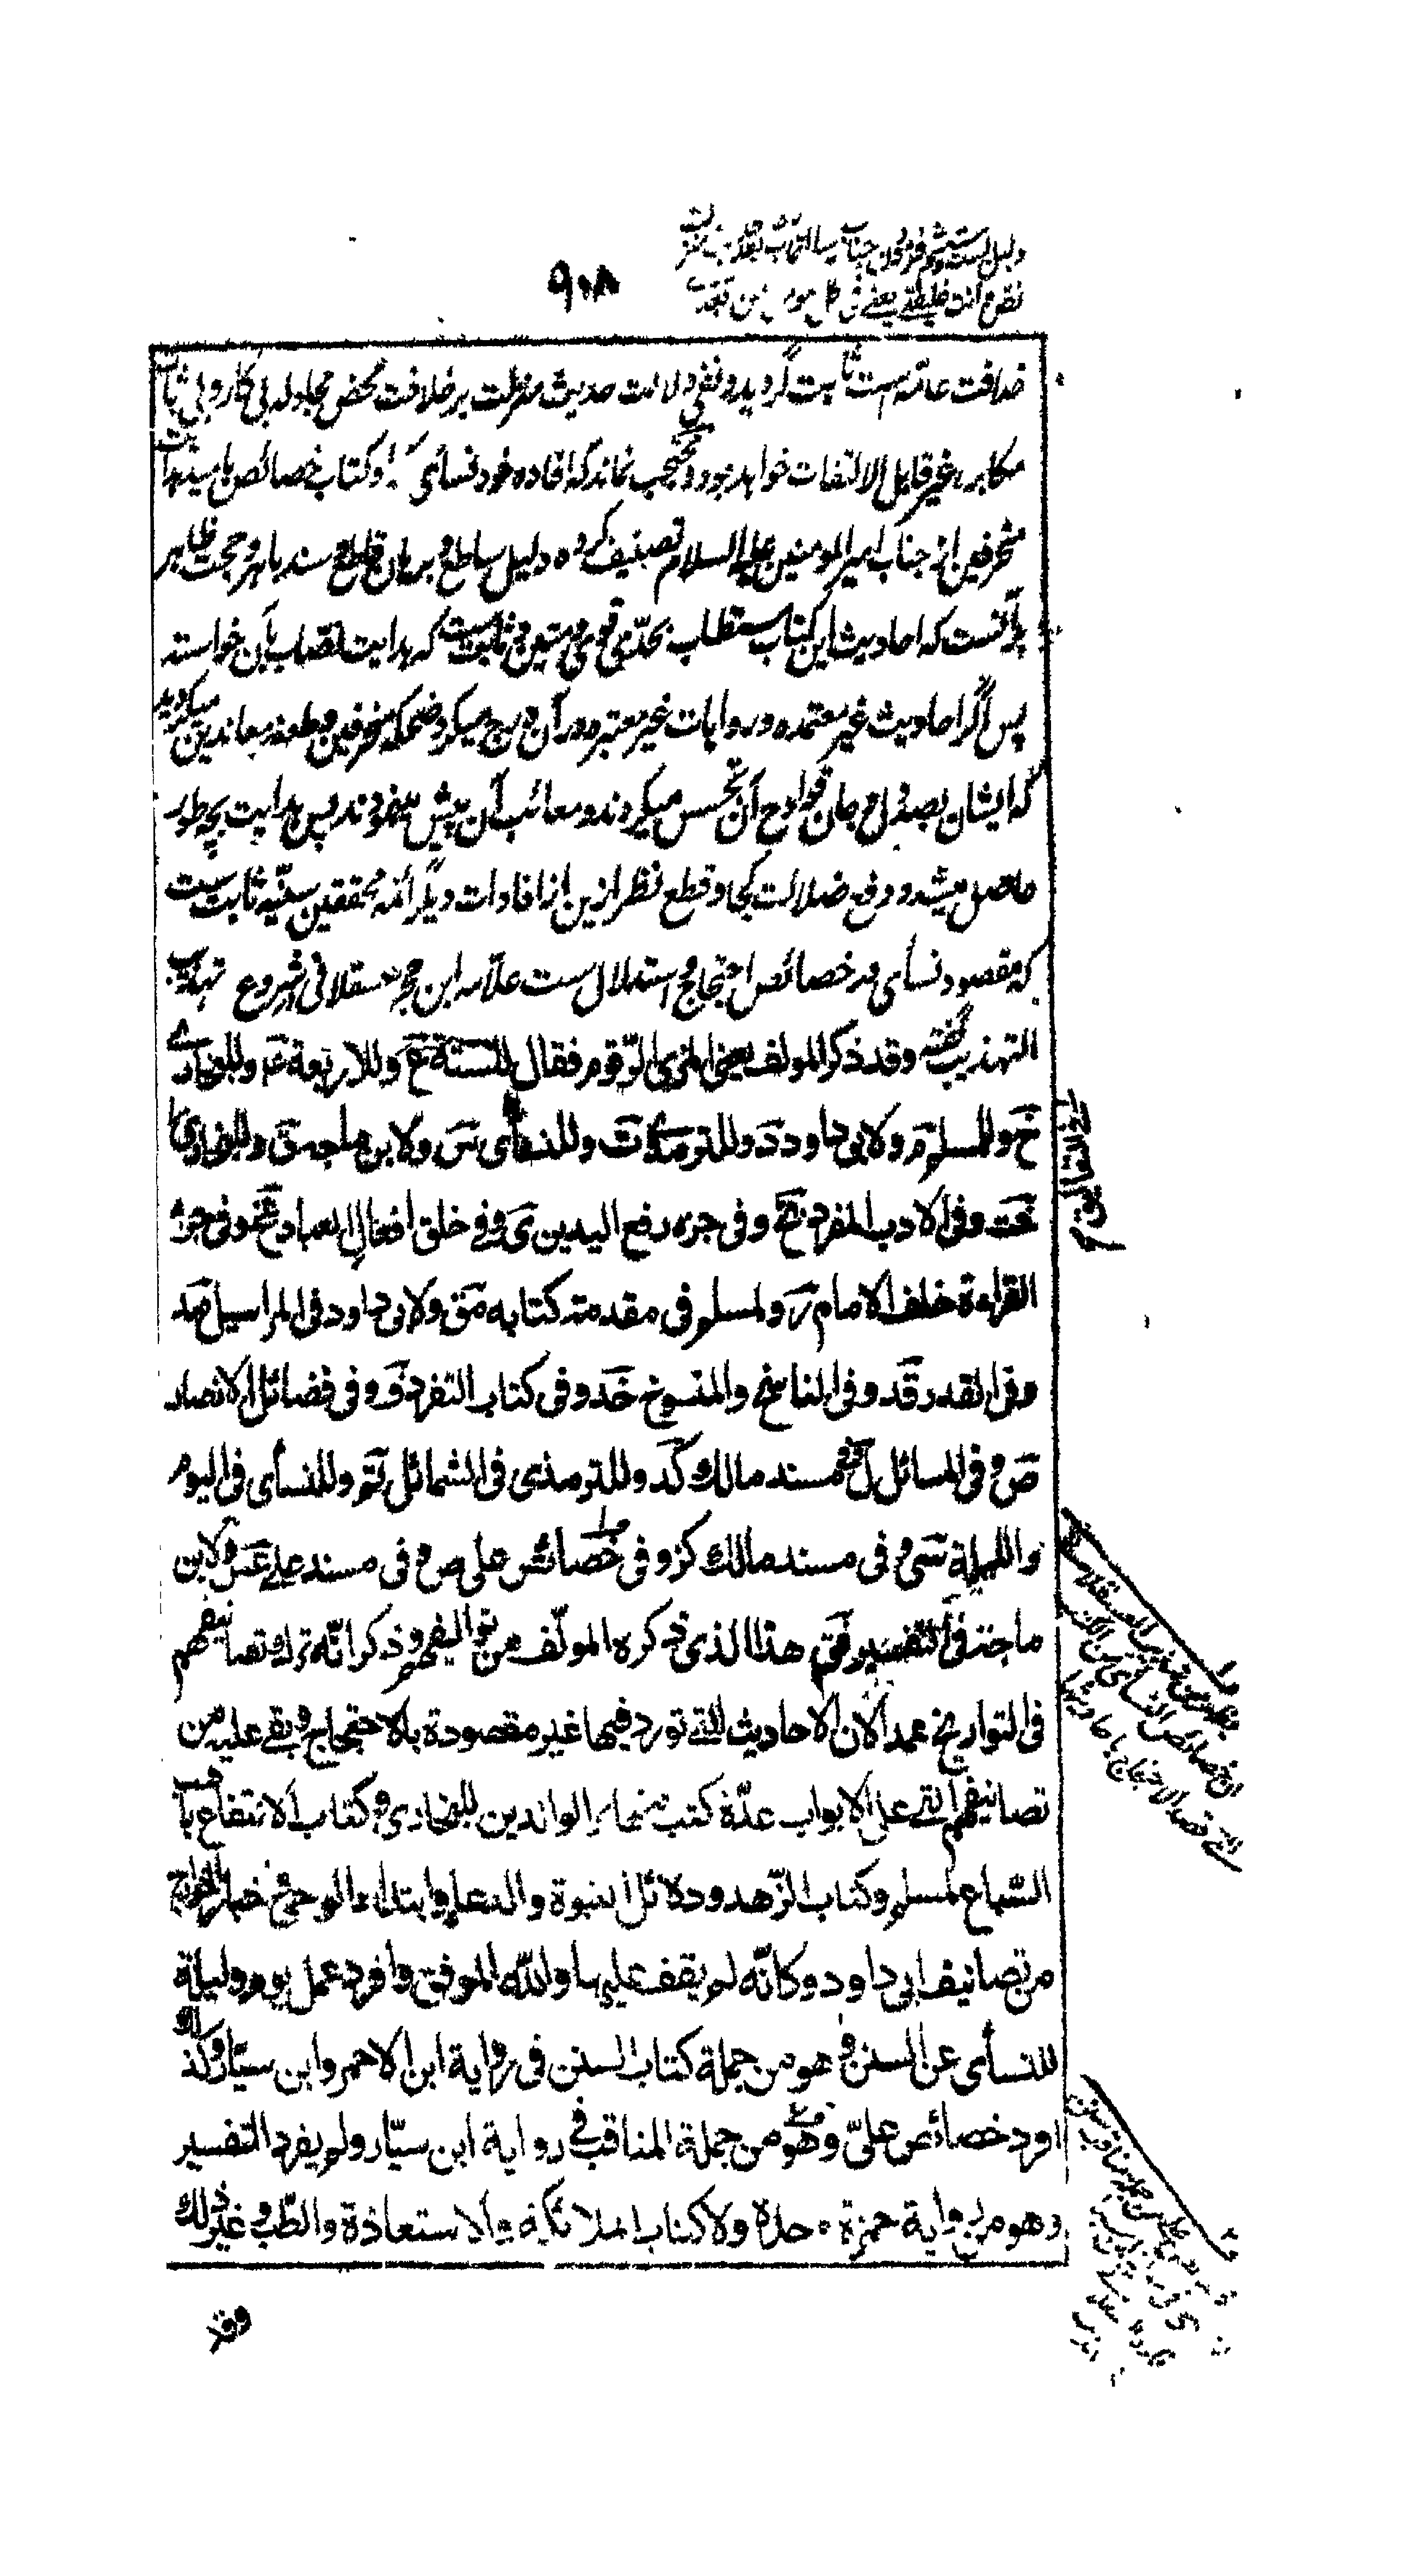 ۹۰۸
خلافت عامه است ثابت گردید و نفی دلالت حدیث منزلت بر خلافت محض مجادله بی کار و بی ثبات
مکابره غیر قابل الالتفات خواهد بود و محتجب نماند که افاده خود نسائی که او کتاب خصائص بامید هدایت
منحرفین از جناب امیرالمومنین علیه السلام تصنیف کرده دلیل ساطع و برهان قاطع و سند باهر و حجت ظاهر
برآنست که احادیث این کتاب مستطاب بحدّی قوی و متین و ثابت ست که هدایت نصّاب بآن خواسته
پس اگر احادیث غیر معتمده و روایات غیر معتبره در آن درج میکرد ضحکه منحرفین و طعنه معاندین میگردید
که ایشان بصد دل و جان قوادح آن تجسس میکردند و معائب آن پیش مینمودند پس هدایت چه طور
حاصل میشد و دفع ضلالت کجا و قطع نظر ازین از افادات دیگر ائمه محققین سنّیه ثابت ست
که مقصود نسائی در خصائص احتجاج و استدلال ست علّامه ابن حجر عسقلانی در شروع تهذیب
التهذیب گفته وقد ذکر المولف یعنی المزی الرّقوم فقال للستّة ع وللاربعة عم وللبخاری
خ ولمسلم م ولابی داود د وللترمذی ت وللنسائی س ولابن ماجه ق وللبخاری فی التعالیق
خت وفی الادب المفرد بخ وفی جزء رفع الیدین ی وفی خلق افعال العباد عخ وفی جزء
القراءة خلف الامام ر ولمسلم فی مقدمته کتابه مق ولابی داود فی المراسیل مد
وفی القدر قد وفی الناسخ والمنسوخ خد وفی کتاب التفرد ف وفی فضائل الانصار
ص وفی المسائل ل وفی مسند مالک کد وللترمذی فی الشمائل تم وللنسائی فی الیوم
واللیلة سی وفی مسند مالک کن وفی خصائص علی ص وفی مسند علی عس ولابن
ماجة فی التفسیر فق هذا الذی ذکره المولّف من توالیفهم وذکر انّه ترک تصانیفهم
فی التواریخ عمدا لان الاحادیث التی تورد فیها غیر مقصودة بالاحتجاج وبقی علیه من
تصانیفهم التی علی الابواب عدّة کتب منها برالوالدین للبخاری وکتاب الانتفاع باهب
السّباع لمسلم وکتاب الزّهد ودلائل النبوة والدعاء وابتداء الوحی واخبار الخوارج
من تصانیف ابی داود وکانّه لم یقف علیها والله الموفق وافرد عمل یوم ولیلة
للنسائی عن السنن وهو من جملة کتاب السنن فی روایة ابن الاحمر وابن سیّار وکذلک
افرد خصائص علیّ وهو من جملة المناقب فی روایة ابن سیّار ولم یفرد التفسیر
وهو من روایة حمزة وحده ولا کتاب الملائکة والاستعاذة والطّب وغیر ذلک
وقد